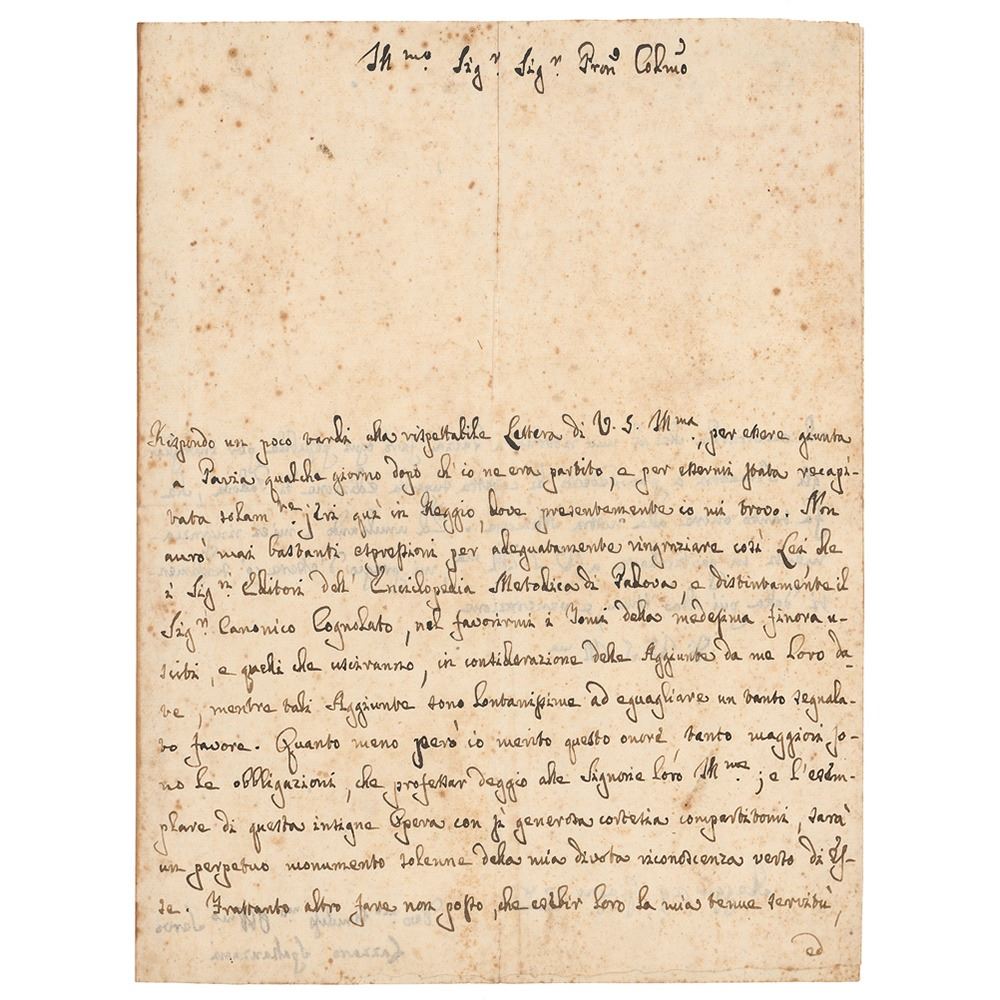 Ill.mo Sig.r Sig.r Pron Colmo
Rispondo un poco tardi alla rispettabile Lettera di V. S. Ill.ma, per essere giunta
a Pavia qualche giorno dopo ch'io ne era partito, e per essermi stata recapi-
tata solam.te jeri qui in Reggio, dove presentemente io mi trovo. Non
aurò mai bastanti espressioni per adeguatamente ringraziare così Lei che
i Sig.ri Editori dell'Enciclopedia Metodica di Padova, e distintamente il
Sig.r Canonico Cognolato, nel favorirmi i Tomi della medesima finora u-
sciti, e quelli che usciranno, in considerazione delle Aggiunte da me Loro da-
te, mentre tali Aggiunte sono lontanissime ad eguagliare un tanto segnala-
to favore. Quanto meno però io merito questo onore, tanto maggiori so-
no le obbligazioni, che professar deggio alle Signorie loro Ill.me; e l'esem-
plare di questa insigne Opera con sì generosa cortesia compartitomi, sarà
un perpetuo monumento solenne della mia divota riconoscenza verso di Es-
se. Frattanto altro fare non posso, che esibir Loro la mia tenue servitù,
ed
Lazzaro Spallanzani